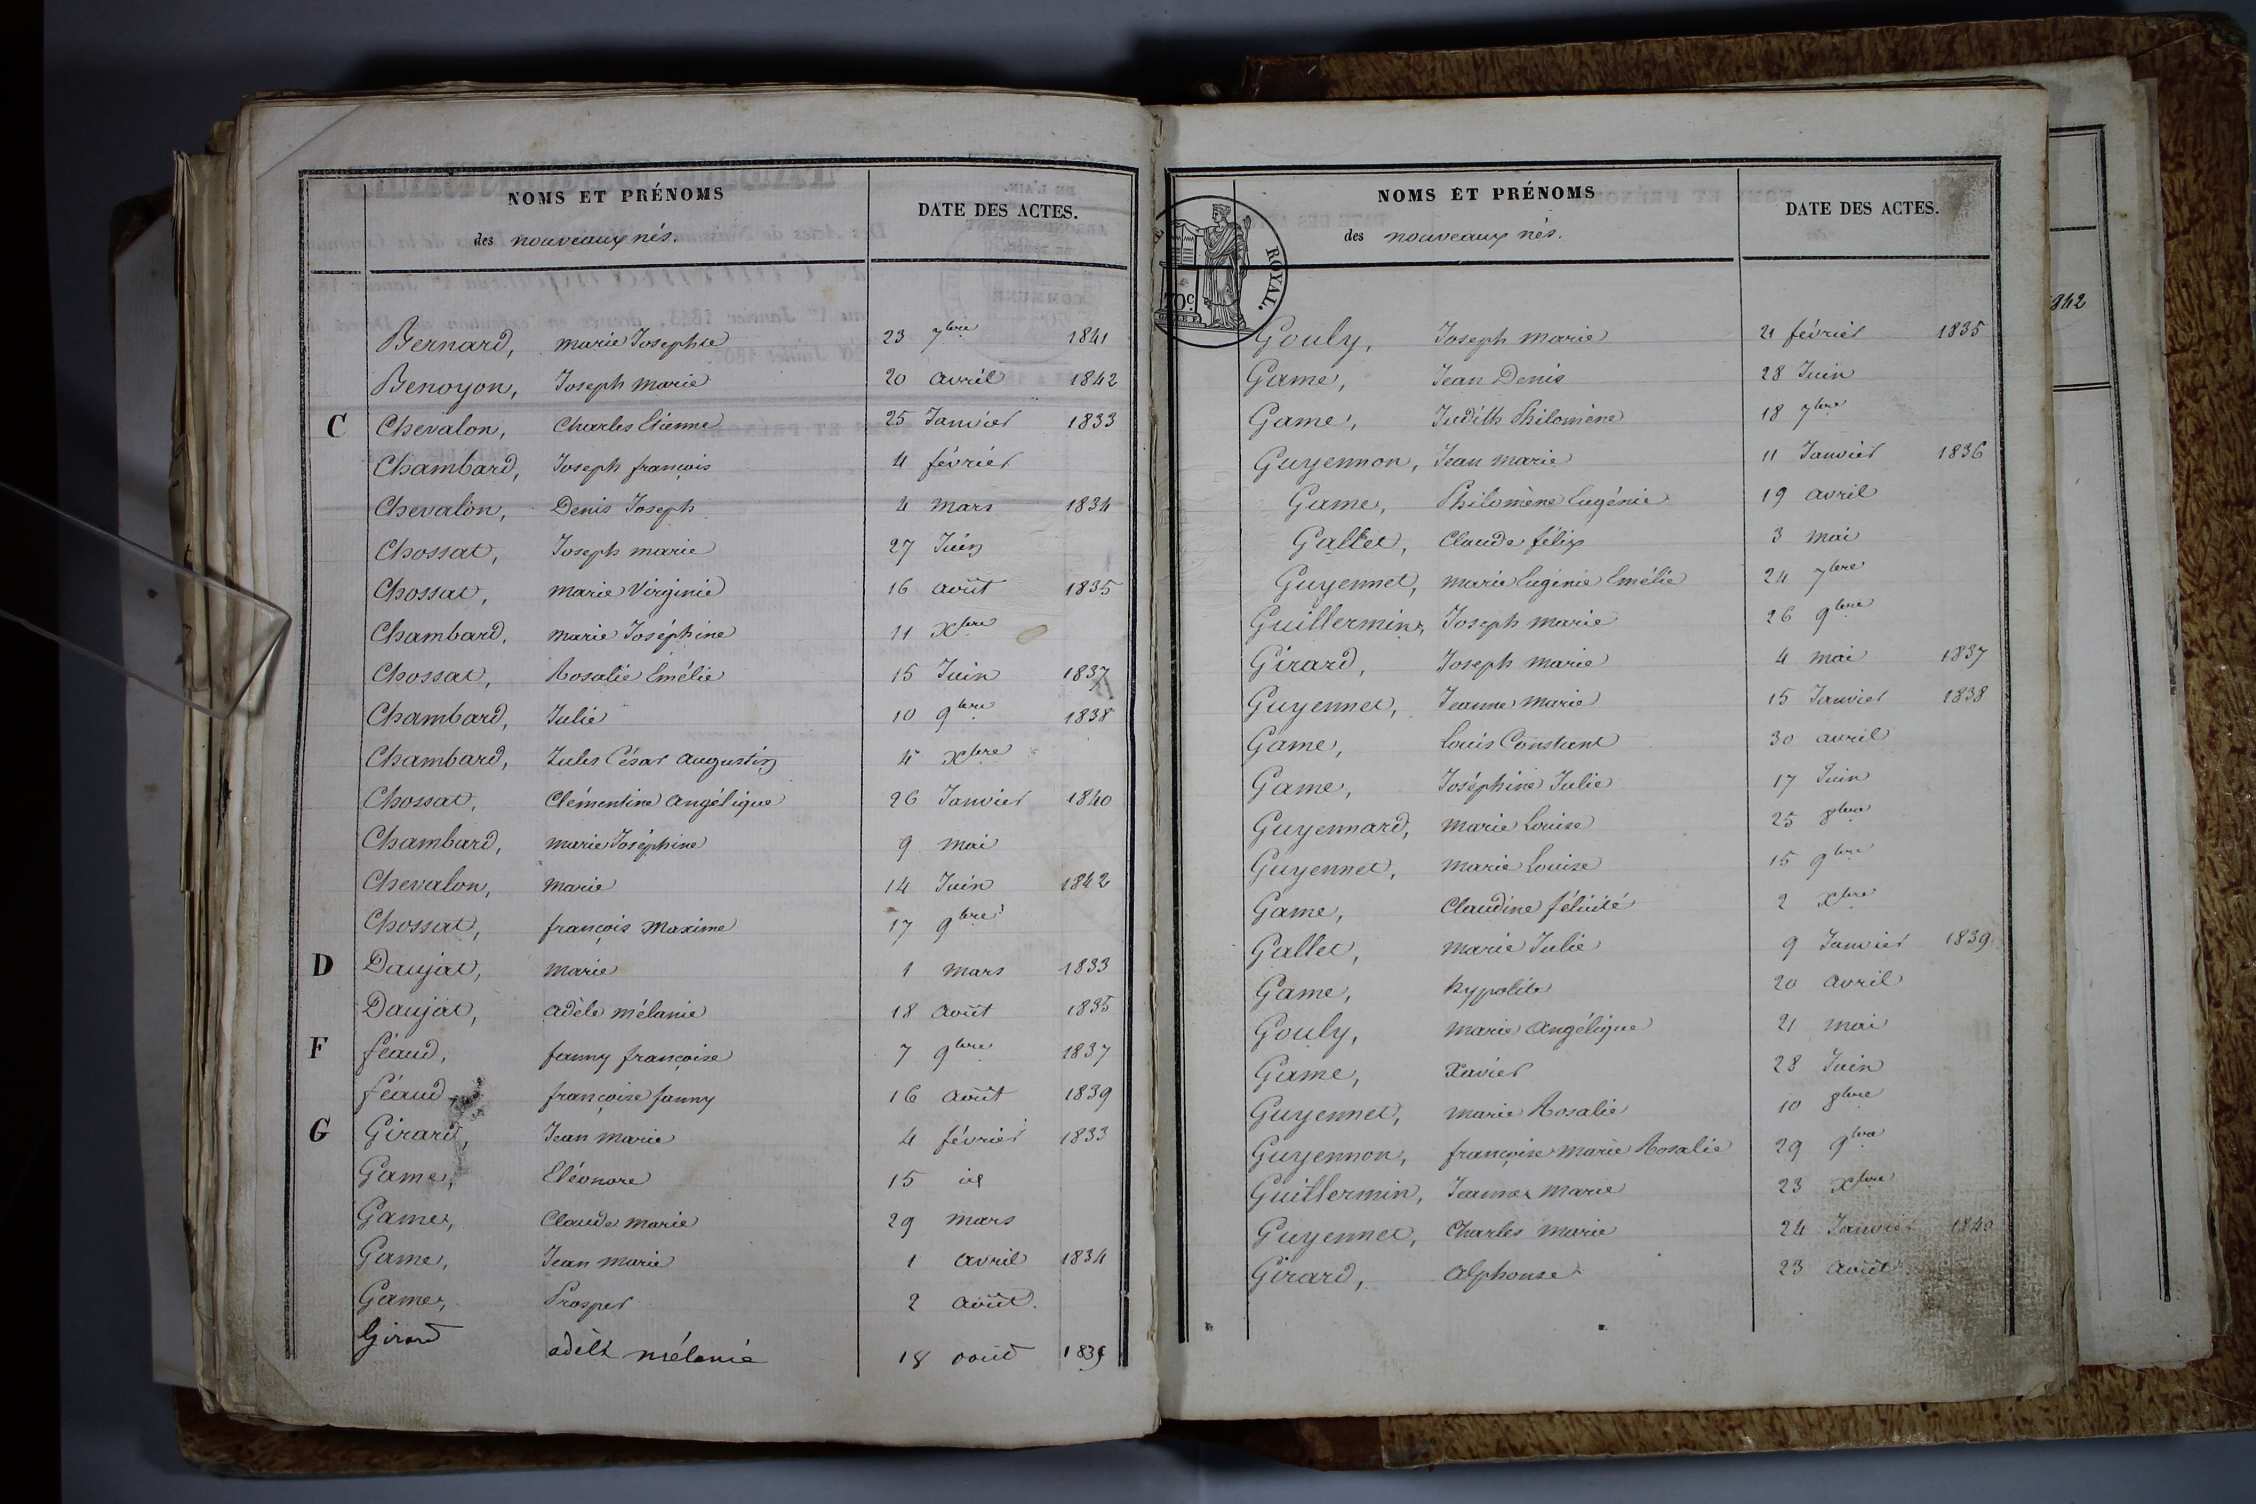 NOMS ET PRÉNOMS
des nouveaux nés.
DATE DES ACTES.
Bernard, marie Josephte 23 7bre 1841
Benoyon, Joseph marie 20 avril 1842
C Chevalon, Charles Etienne 25 Janvier 1833
Chambard, Joseph françois 4 février
Chevalon, Denis Joseph 4 mars 1834
Chossat, Joseph marie 27 Juin
Chossat, marie Virginie 16 août 1835
Chambard, marie Joséphine 11 Xbre
Chossat, Rosalie Emélie 15 Juin 1837
Chambard, Julie 10 9bre 1838
Chambard, Jules César augustin 4 Xbre
Chossat, Clémentine angélique 26 Janvier 1840
Chambard, marie Joséphine 9 mai
Chevalon, marie 14 Juin 1842
Chossat, françois maxime 17 9bre
D Daujat, marie 1 mars 1833
Daujat, adèle mélanie 18 août 1835
F féaud, fanny françoise 7 9bre 1837
féaud, françoise fanny 16 août 1839
G Girard, Jean marie 4 février 1833
Game, Eléonore 15 id
Game, Claude marie 29 mars
Game, Jean marie 1 avril 1834
Game, Prosper 2 août.
Girard adèle mélanie 18 août
NOMS ET PRÉNOMS
des nouveaux nés.
DATE DES ACTES.
ROYAL.
Gouly, Joseph marie 21 février 1835
Game, Jean Denis 28 Juin
Game, Judith Philomène 18 7bre
Guyennon, Jean marie 11 Janvier 1836
Game, Philomène Eugénie 19 avril
Gallet, Claude félix 3 mai
Guyennet, marie Eugénie Emélie 24 7bre
Guillermin, Joseph marie 26 9bre
Girard, Joseph marie 4 mai 1837
Guyennet, Jeanne marie 15 Janvier 1838
Game, Louis Constant 30 avril
Game, Joséphine Julie 17 Juin
Guyennard, marie Louise 25 8bre
Guyennet, marie Louise 15 9bre
Game, Claudine félicité 2 Xbre
Gallet, marie Julie 9 Janvier 1839
Game, hypolite 20 avril
Gouly, marie angélique 21 mai
Game, Xavier 28 Juin
Guyennet, marie Rosalie 10 8bre
Guyennon, françoise marie Rosalie 29 9bre
Guillermin, Jeanne marie 23 Xbre
Guyennet, Charles marie 24 Janvier 1840
Girard, alphonse 23 août